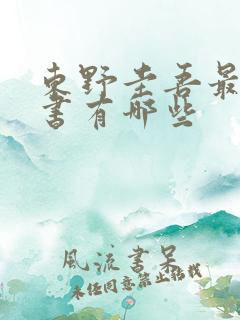 东野圭吾最
书有哪些
风流书呆
未经同意禁止转载